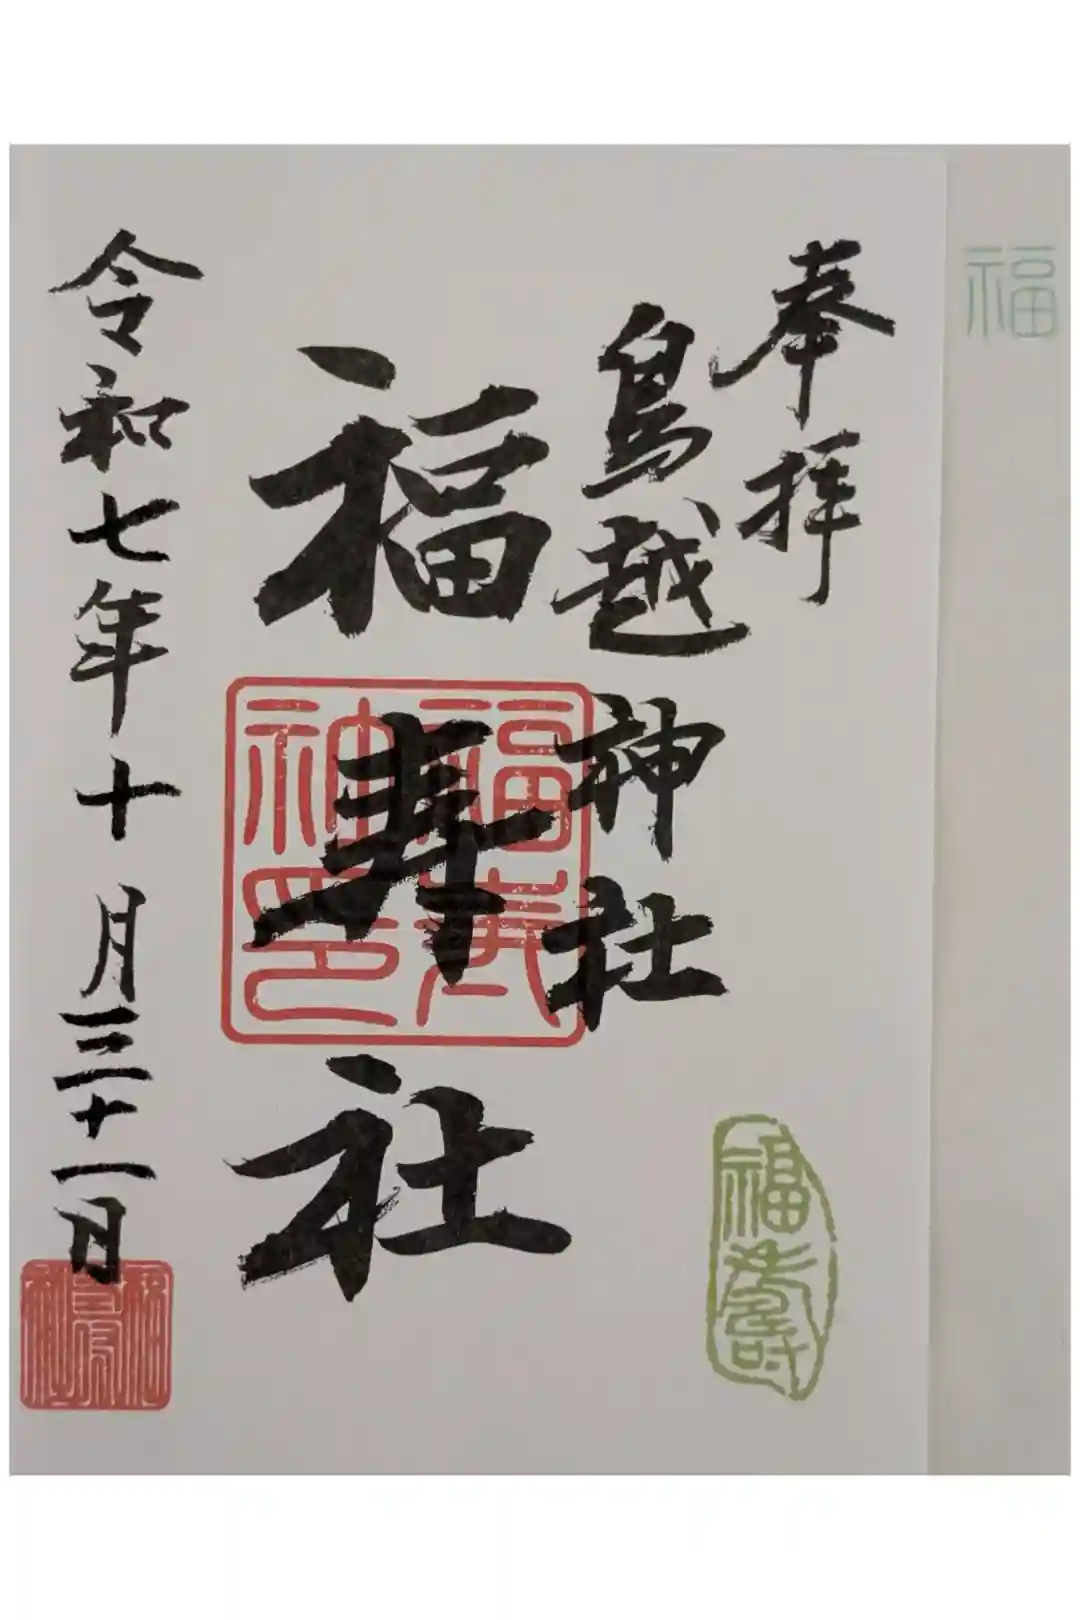 福
奉拝
鳥越神社
福寿社
福寿
令和七年十月三十一日